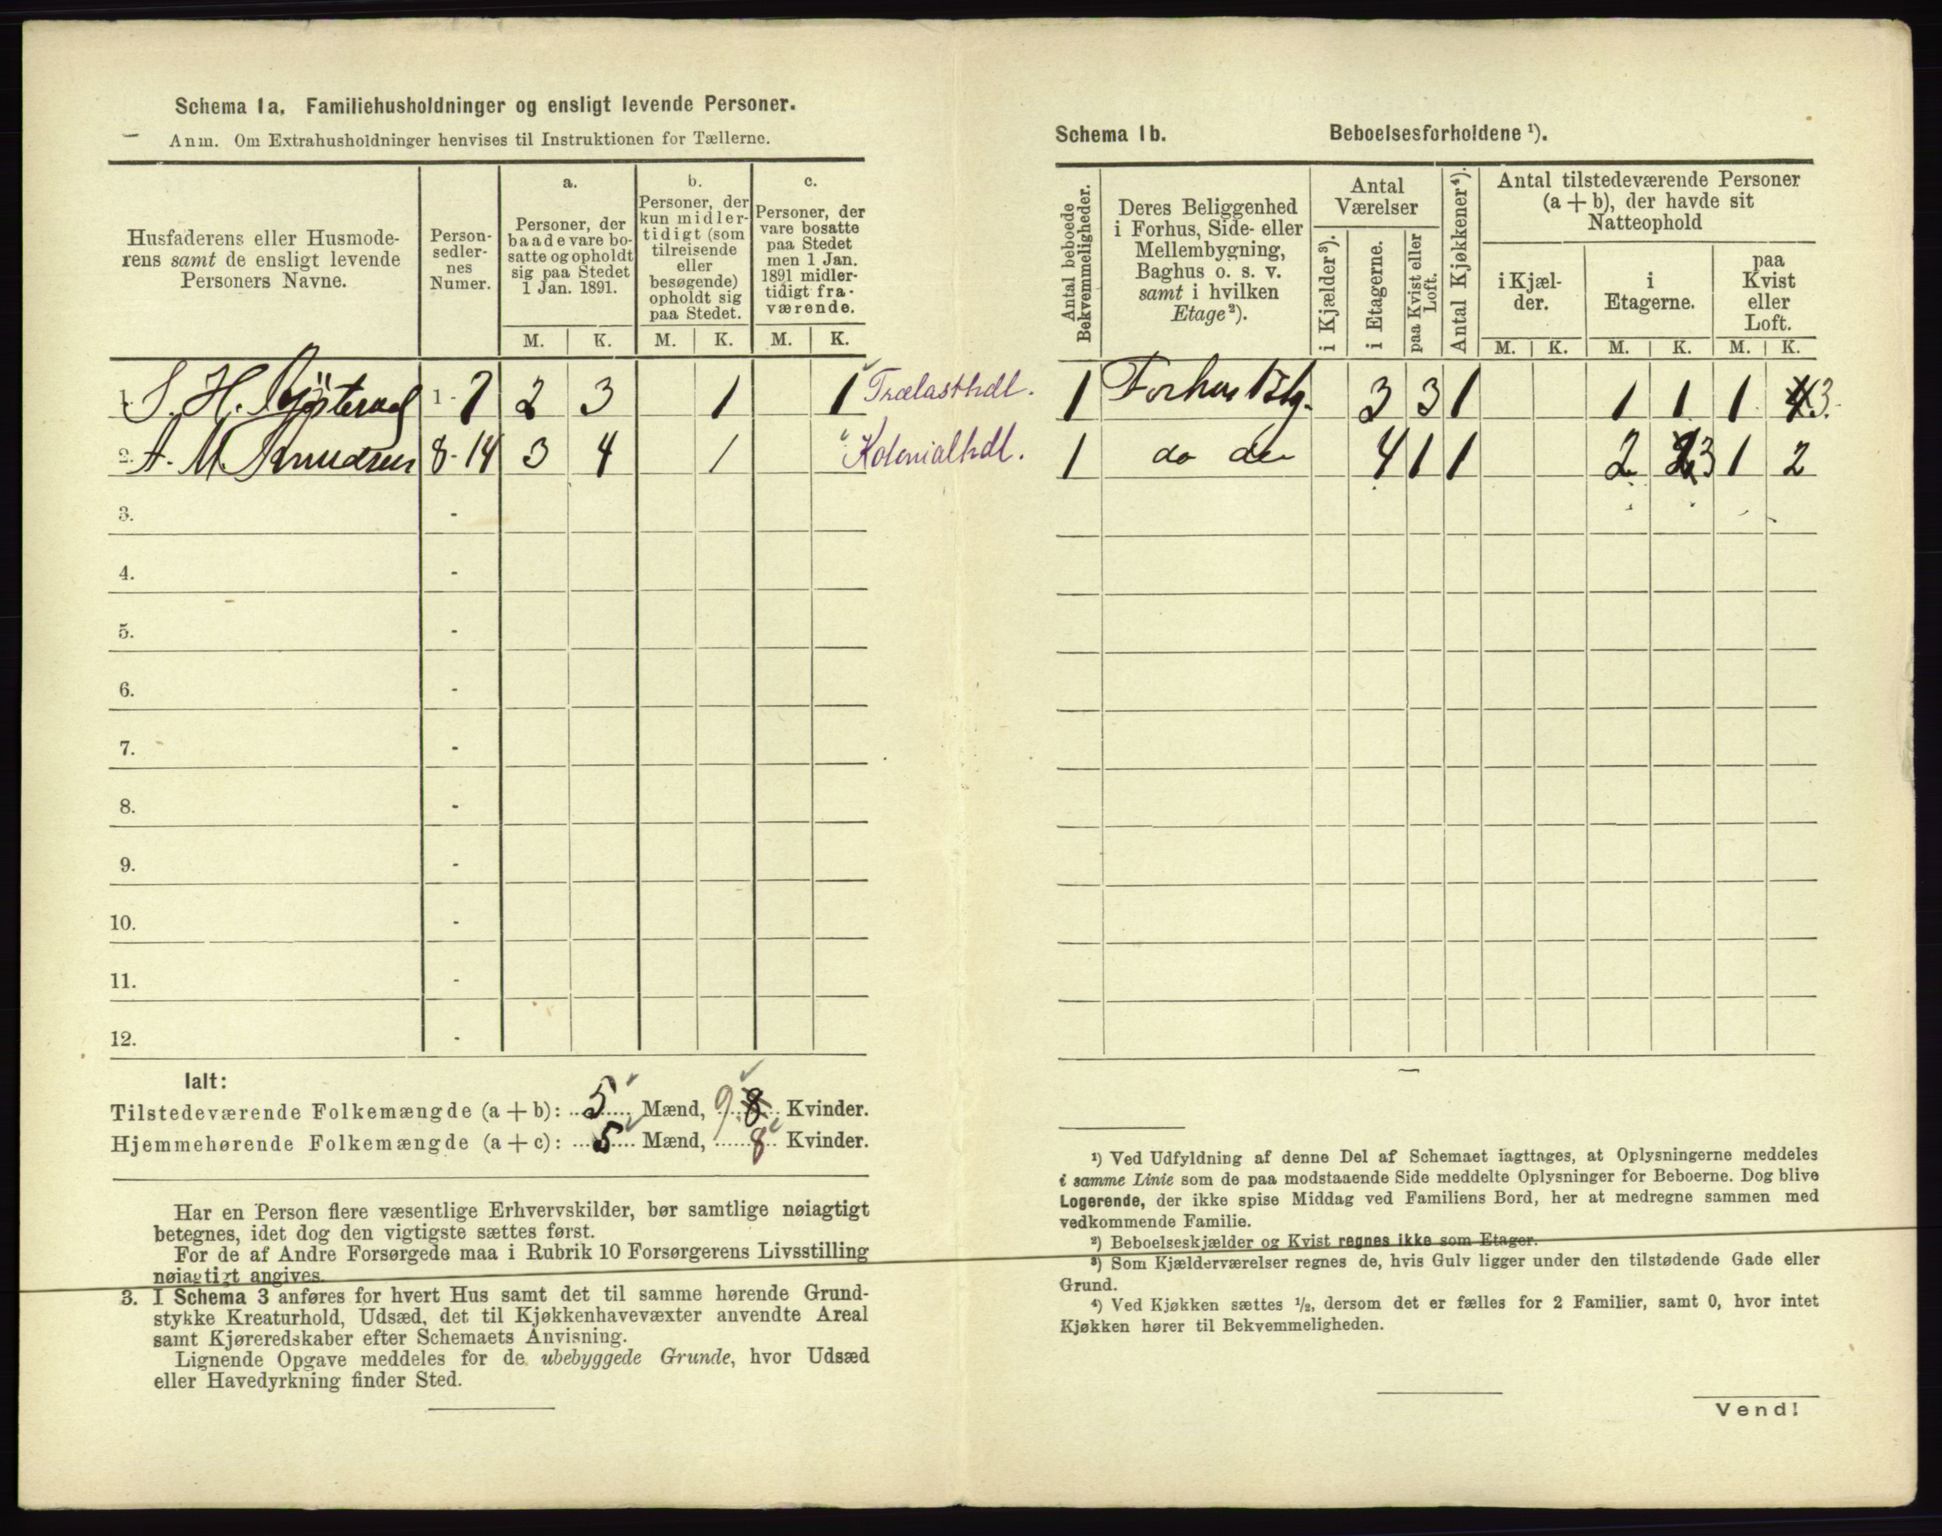 Schema 1a. Familiehusholdninger og ensligt levende Personer.
Anm. Om Extrahusholdninger henvises til Instruktionen for Tællerne.
Husfaderens eller Husmoderens samt de ensligt levende Personers Navne.
Personsedlernes Numer.
a.
Personer, der baade vare bosatte og opholdt sig paa Stedet 1 Jan. 1891.
b.
Personer, der kun midlertidigt (som tilreisende eller besøgende) opholdt sig paa Stedet.
c.
Personer, der vare bosatte paa Stedet men 1 Jan. 1891 midlertidigt fraværende.
M. K. M. K. M. K.
1. S. H. 1 - 7 2 3 1 1 Trælasthdl.
2. A. M. Knudsen 8 - 14 3 4 1 Kolonialhdl.
3. -
4. -
5. -
6. -
7. -
8. -
9. -
10. -
11. -
12. -
Ialt:
Tilstedeværende Folkemængde (a + b): 5 Mænd, 9 8 Kvinder.
Hjemmehørende Folkemængde (a + c): 5 Mænd, 8 Kvinder.
Har en Person flere væsentlige Erhvervskilder, bør samtlige nøiagtigt
betegnes, idet dog den vigtigste sættes først.
For de af Andre Forsørgede maa i Rubrik 10 Forsørgerens Livsstilling
nøiagtigt angives.
3. I Schema 3 anføres for hvert Hus samt det til samme hørende Grund-
stykke Kreaturhold, Udsæd, det til Kjøkkenhavevæxter anvendte Areal
samt Kjøreredskaber efter Schemaets Anvisning.
Lignende Opgave meddeles for de ubebyggede Grunde, hvor Udsæd
eller Havedyrkning finder Sted.
Schema 1b. Beboelsesforholdene ¹).
Antal beboede Bekvemmeligheder.
Deres Beliggenhed i Forhus, Side- eller Mellembygning, Baghus o. s. v. samt i hvilken Etage ²).
Antal Værelser
i Kjælder ³).
i Etagerne.
paa Kvist eller Loft.
Antal Kjøkkener ⁴).
Antal tilstedeværende Personer (a + b), der havde sit Natteophold
i Kjælder.
i Etagerne.
paa Kvist eller Loft.
M. K. M. K. M. K.
1 Forhus 1 Etg. 3 3 1 1 1 1 4 3.
1 do do 4 1 1 2 2 3 1 2
¹) Ved Udfyldning af denne Del af Schemaet iagttages, at Oplysningerne meddeles
i samme Linie som de paa modstaaende Side meddelte Oplysninger for Beboerne. Dog blive
Logerende, der ikke spise Middag ved Familiens Bord, her at medregne sammen med
vedkommende Familie.
²) Beboelseskjælder og Kvist regnes ikke som Etager.
³) Som Kjælderværelser regnes de, hvis Gulv ligger under den tilstødende Gade eller
Grund.
⁴) Ved Kjøkken sættes ½, dersom det er fælles for 2 Familier, samt 0, hvor intet
Kjøkken hører til Bekvemmeligheden.
Vend!